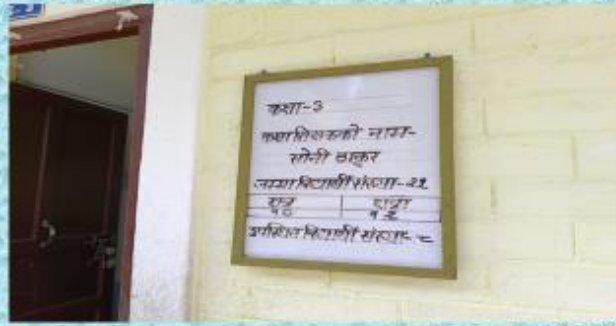 कक्षा-3
कक्षा शिक्षकको नाम-
सोनी ठाकुर
जम्मा विद्यार्थी संख्या-२२
छात्र छात्रा
१० १२
उपस्थित विद्यार्थी संख्या-